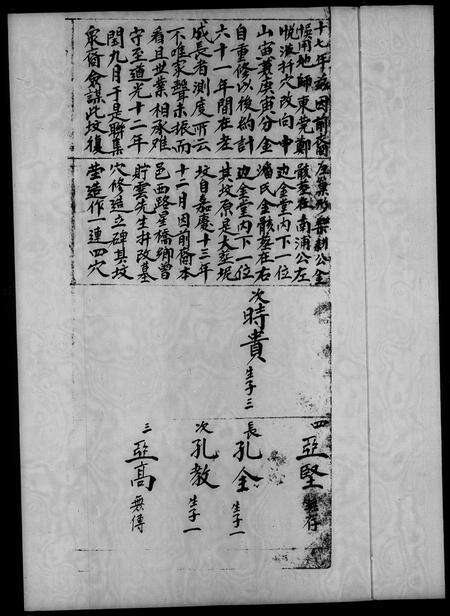 十七年為因前裔
悞用地師東莞鄭
悦波扦穴改向申
山寅兼庚甲分金
自重修以後約計
六十一年間在老
成長者測度所云
不唯家聲未振而
看且世業相承难
守至道光十二年
閏九月于是聯集
衆裔會議此坟復
樂耕公金
骸葬在南浦公左
边金堂內下一位
潘氏金骸葬在右
边金堂內下一位
其坟原是大垄坭
坟自嘉慶十三年
十二月因前裔本
邑西路星橋鄉曽
貯雲先生幷改墓
穴修造立碑其坟
塋造作一連四穴
次時貴 生子三
四亞堅 無存
長孔金 生子一
次孔教 生子一
三亞高 無得